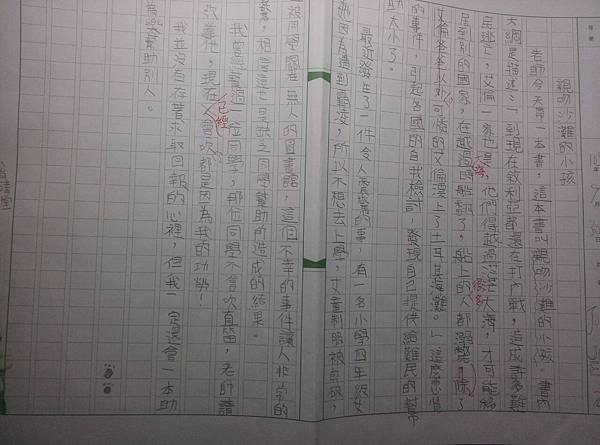 親吻沙灘的小孩
老師今天帶一本書,這本書叫親吻沙灘的小孩。書內
大綱是描述:「到現在敘利亞都還在打內戰,造成許多難
民逃亡,艾倫一家也是,他們得越過大海,才可能移
居到別的國家。在越過時船翻了,船上的人都溺斃,除了
艾倫爸爸以外,可憐的艾倫漂上了土耳其海灘。」這麼悲慘
的事件,引起各國的自我檢討,發現自己提供給難民的幫
助太小了。
最近發生了一件令人震驚的事,有一名小學四年級女
因為遭到霸凌,所以不想去上學,制服被剪破,
且被同學關在無人的圖書館,這個不幸的事件讓人非常的
驚,相信這也是缺乏同學幫助所造成的結果。
我曾經幫過一位同學,那位同學不會吹直笛,老師請
教他,現在已經會吹都是因為我的功勞!
我並沒有存著求取回報的心裡,但我一定還會一本助
幫助別人。